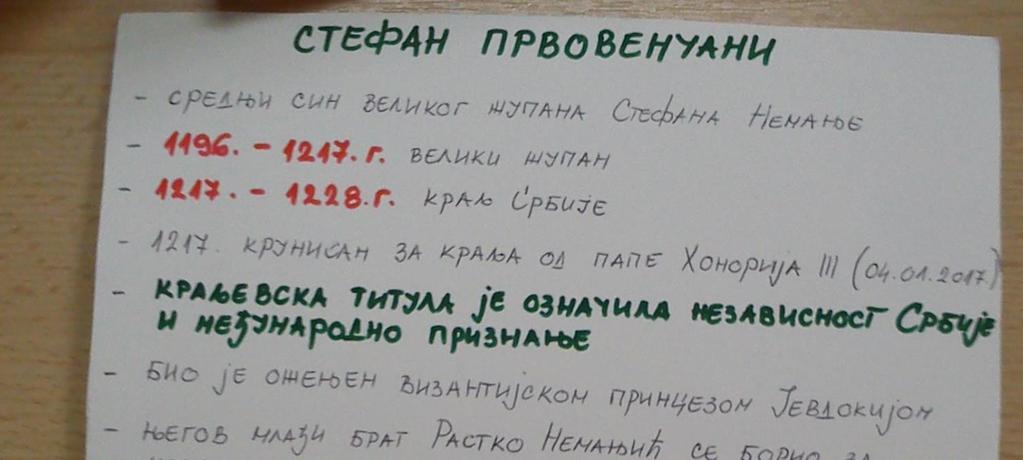 СТЕФАН ПРВОВЕНЧАНИ
- СРЕДЊИ СИН ВЕЛИКОГ ЖУПАНА СТЕФАНА НЕМАЊЕ
- 1196. - 1217. г. ВЕЛИКИ ЖУПАН
- 1217. - 1228. г. КРАЉ СРБИЈЕ
- 1217. КРУНИСАН ЗА КРАЉА ОД ПАПЕ ХОНОРИЈА III (04.01.2017.)
- КРАЉЕВСКА ТИТУЛА ЈЕ ОЗНАЧИЛА НЕЗАВИСНОСТ СРБИЈЕ
И МЕЂУНАРОДНО ПРИЗНАЊЕ
- БИО ЈЕ ОЖЕЊЕН ВИЗАНТИЈСКОМ ПРИНЦЕЗОМ ЈЕВДОКИЈОМ
- ЊЕГОВ МЛАЂИ БРАТ РАСТКО НЕМАЊИЋ СЕ БОРИО ЗА